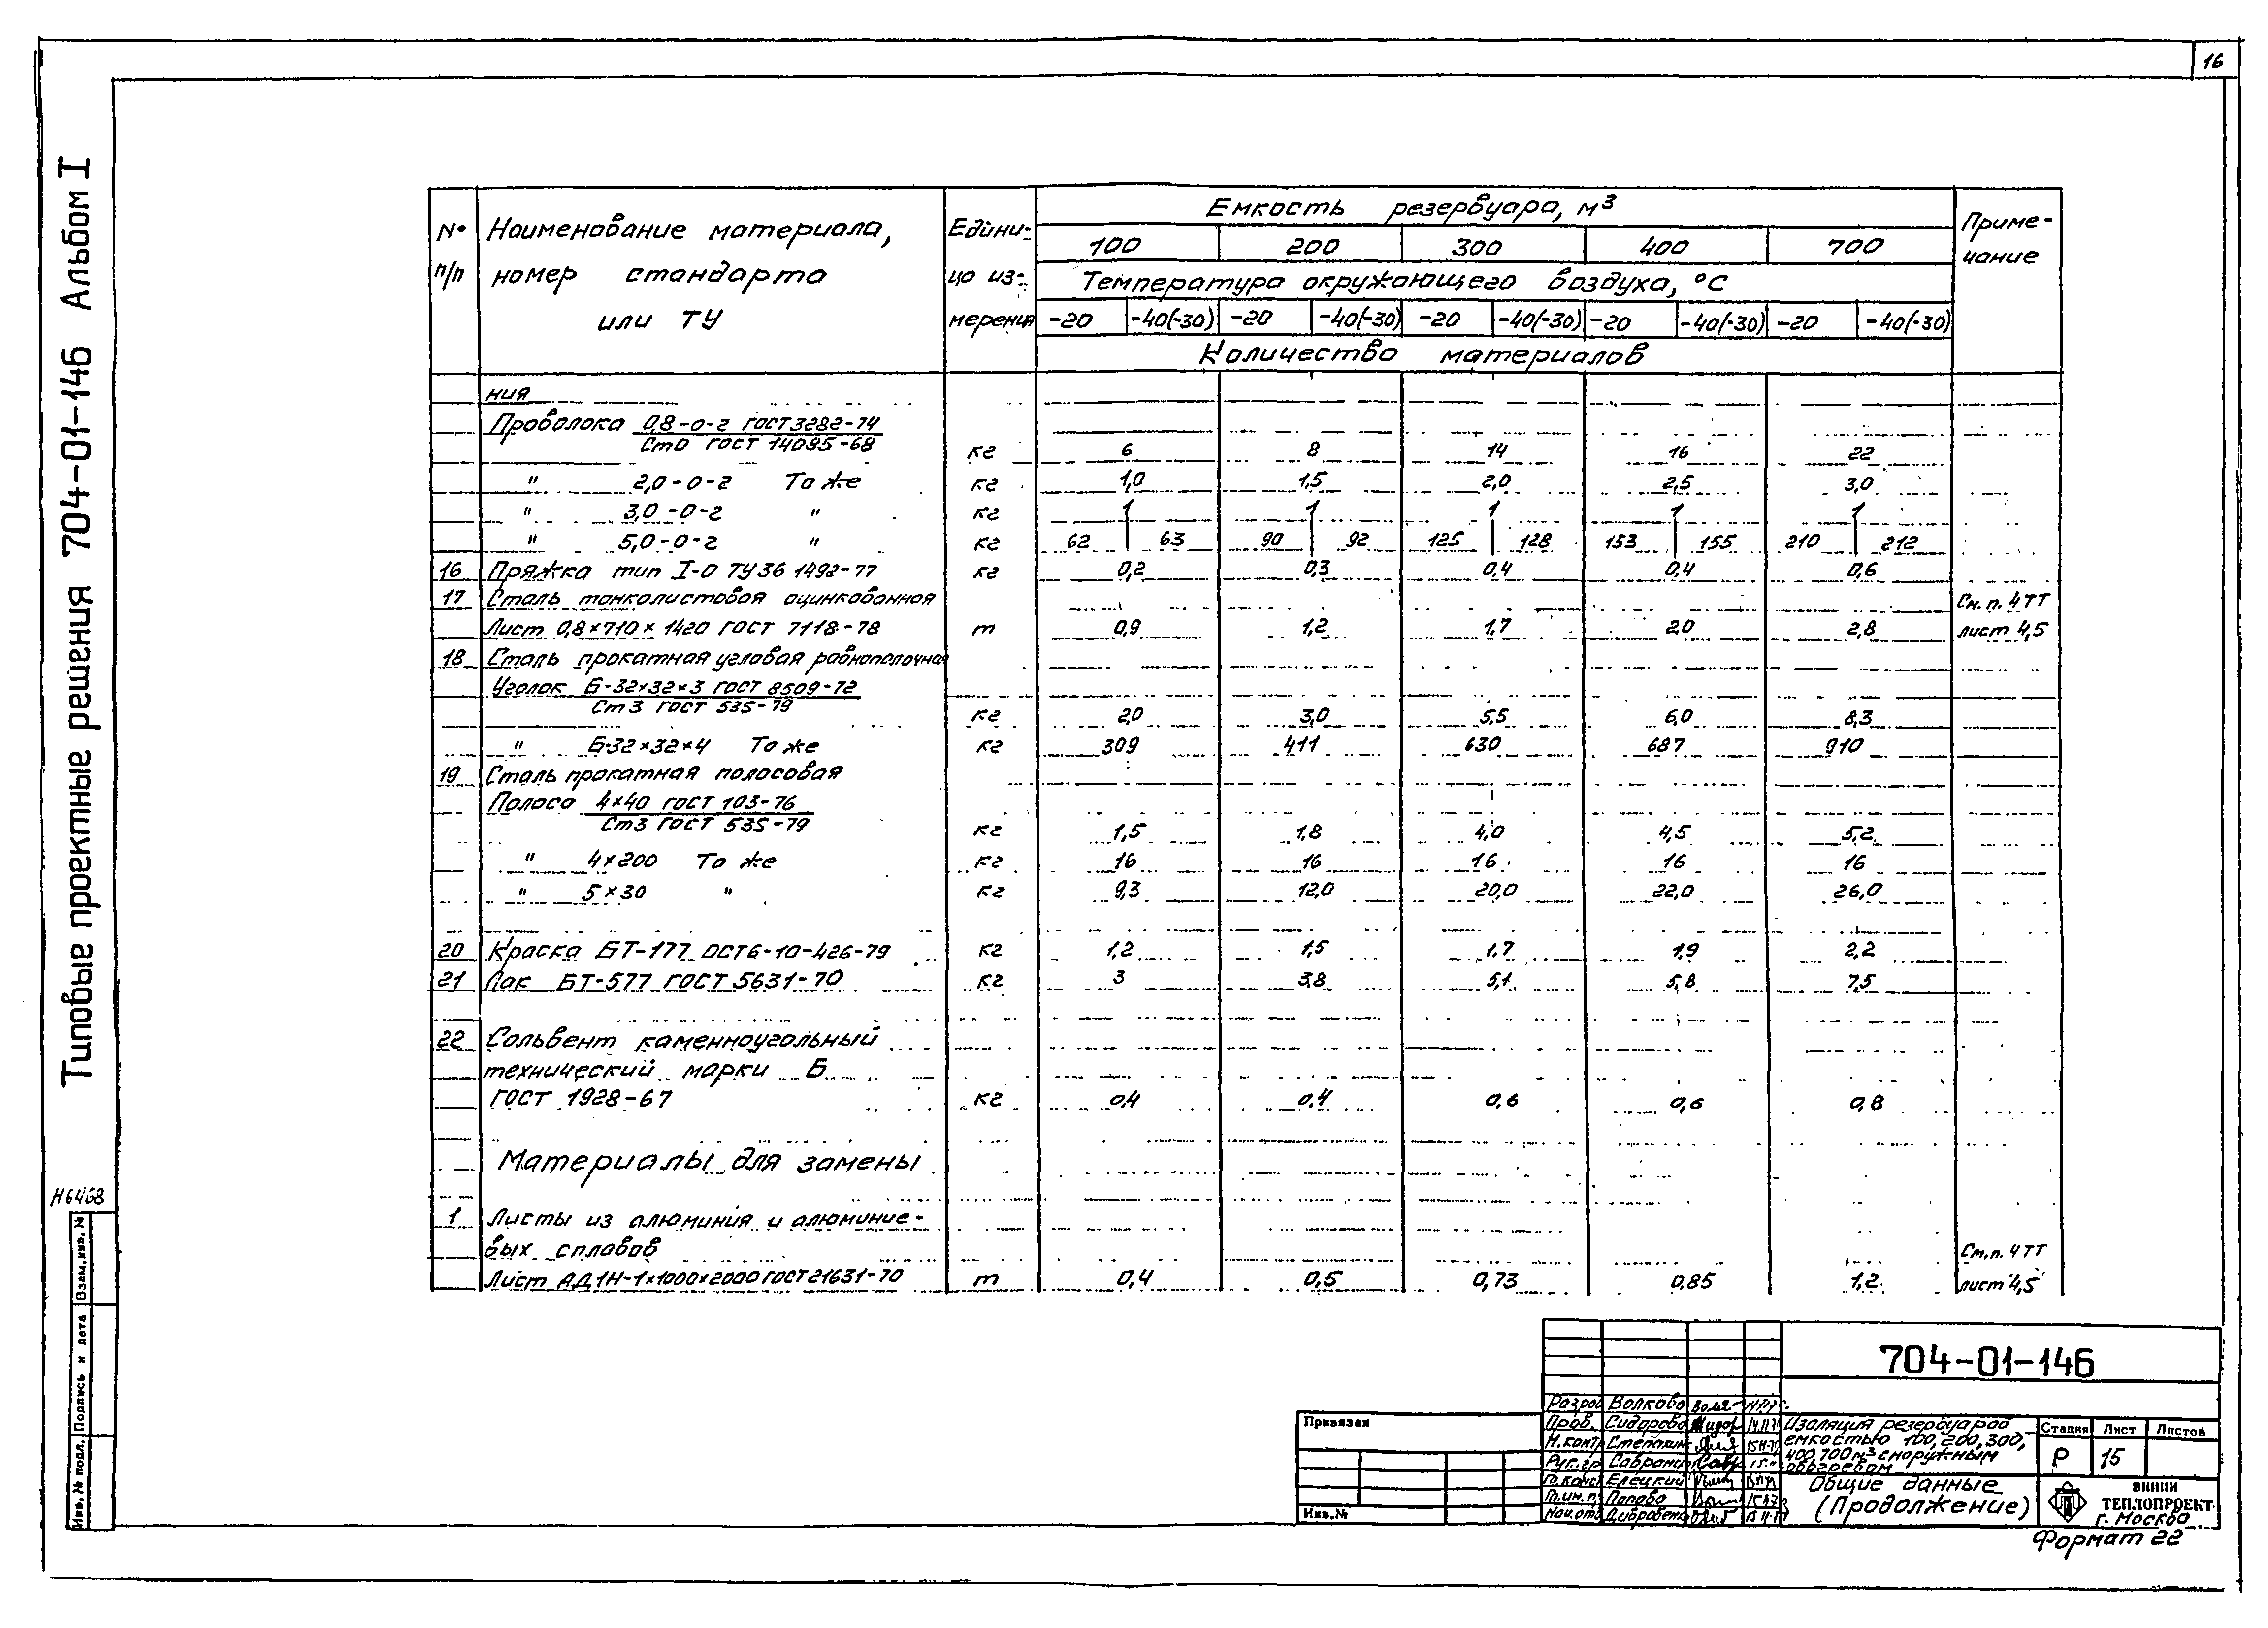 16
Типовые проектные решения 704-01-146 Альбом I
№ п/п
Наименование материала, номер стандарта или ТУ
Едини-
ца из-
мерения
Емкость резервуара, м³
100 200 300 400 700
Температура окружающего воздуха, °С
-20 -40(-30) -20 -40(-30) -20 -40(-30) -20 -40(-30) -20 -40(-30)
Количество материалов
Приме-
чание
ния
Проволока 0,8-о-г ГОСТ 3282-74
Ст0 ГОСТ 14085-68 кг 6 8 14 16 22
" 2,0-о-г То же кг 1,0 1,5 2,0 2,5 3,0
" 3,0-о-г " кг 1 1 1 1 1
" 5,0-о-г " кг 62 63 90 92 125 128 153 155 210 212
16 Пряжка тип I-О ТУ36 1492-77 кг 0,2 0,3 0,4 0,4 0,6
17 Сталь тонколистовая оцинкованная См. п. 4 ТТ
Лист 0,8×710×1420 ГОСТ 7118-78 т 0,9 1,2 1,7 2,0 2,8 лист 4,5
18 Сталь прокатная угловая равнополочная
Уголок Б-32×32×3 ГОСТ 8509-72
Ст3 ГОСТ 535-79 кг 2,0 3,0 5,5 6,0 8,3
" Б-32×32×4 То же кг 309 411 630 687 910
19 Сталь прокатная полосовая
Полоса 4×40 ГОСТ 103-76
Ст3 ГОСТ 535-79 кг 1,5 1,8 4,0 4,5 5,2
" 4×200 То же кг 16 16 16 16 16
" 5×30 " кг 9,3 12,0 20,0 22,0 26,0
20 Краска БТ-177 ОСТ6-10-426-79 кг 1,2 1,5 1,7 1,9 2,2
21 Лак БТ-577 ГОСТ 5631-70 кг 3 3,8 5,1 5,8 7,5
22 Сольвент каменноугольный
технический марки Б
ГОСТ 1928-67 кг 0,4 0,4 0,6 0,6 0,8
Материалы для замены
1 Листы из алюминия и алюминие-
вых сплавов См. п. 4 ТТ
Лист АД1Н-1×1000×2000 ГОСТ 21631-70 т 0,4 0,5 0,73 0,85 1,2 лист 4,5
Н6468
Взам.инв.№
Подпись и дата
Инв.№ подл.
Привязан
Инв.№
704-01-146
Разраб Волкова
Пров. Сидорова
Н.контр Степахин
Рук.гр
Гл.конст Елецкий
Гл.ин.п. Попова
Нач.отд
Изоляция резервуаров
емкостью 100, 200, 300,
400, 700 м³ с наружным
обогревом
Общие данные
(Продолжение)
Стадия Лист Листов
Р 15
ВНИПИ
ТЕПЛОПРОЕКТ
г. Москва
Формат 22